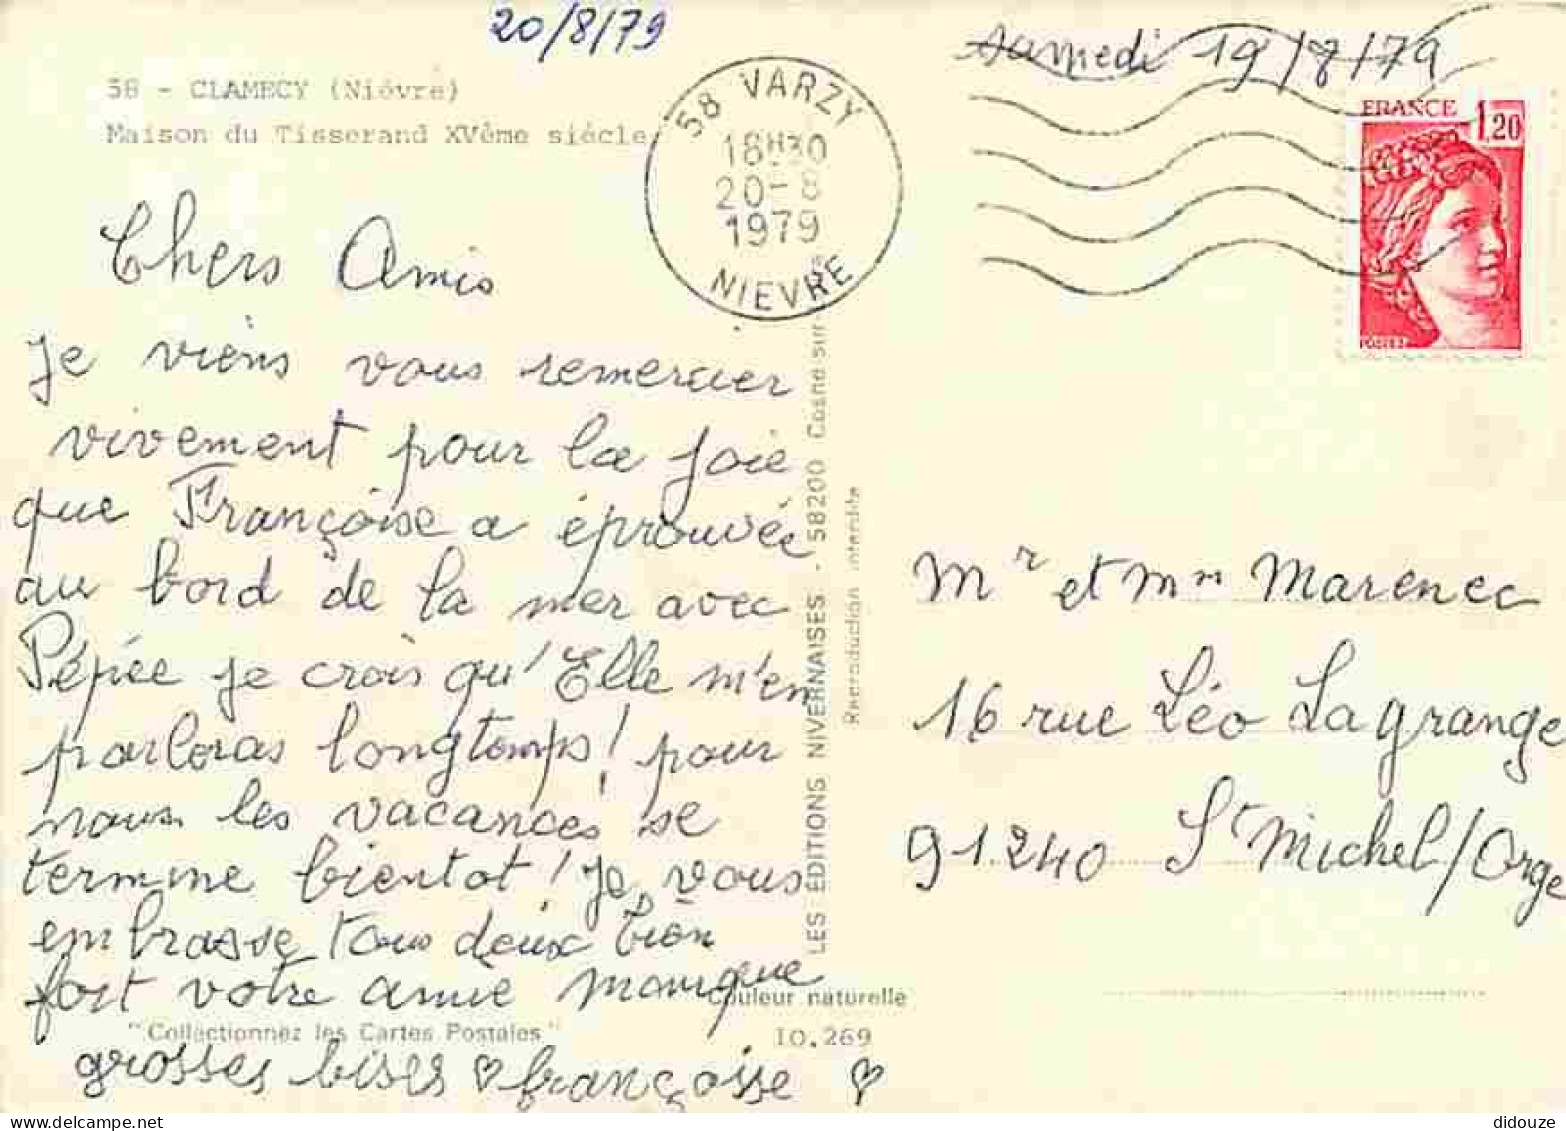 20/8/79
samedi 19/8/79
58 - CLAMECY (Niévre)
Maison du Tisserand XVème siécle
58 VARZY
18H30
20-8
1979
NIEVRE
FRANCE 1,20
Chers Amis
Je viens vous remercier
vivement pour la joie
que Françoise a éprouvée
au bord de la mer avec
Pépée je crois qu'Elle m'en
parleras longtemps! pour
nous les vacances se
termine bientot! Je vous
embrasse tous deux bien
fort votre amie
grosses bises ♡ françoise ♡
Mr et Mm Marenec
16 rue Léo Lagrange
91240 St Michel/Orge
LES ÉDITIONS NIVERNAISES - 58200 Cosne-sur
Reproduction interdite
Couleur naturelle
"Collectionnez les Cartes Postales"
10.269
didouze